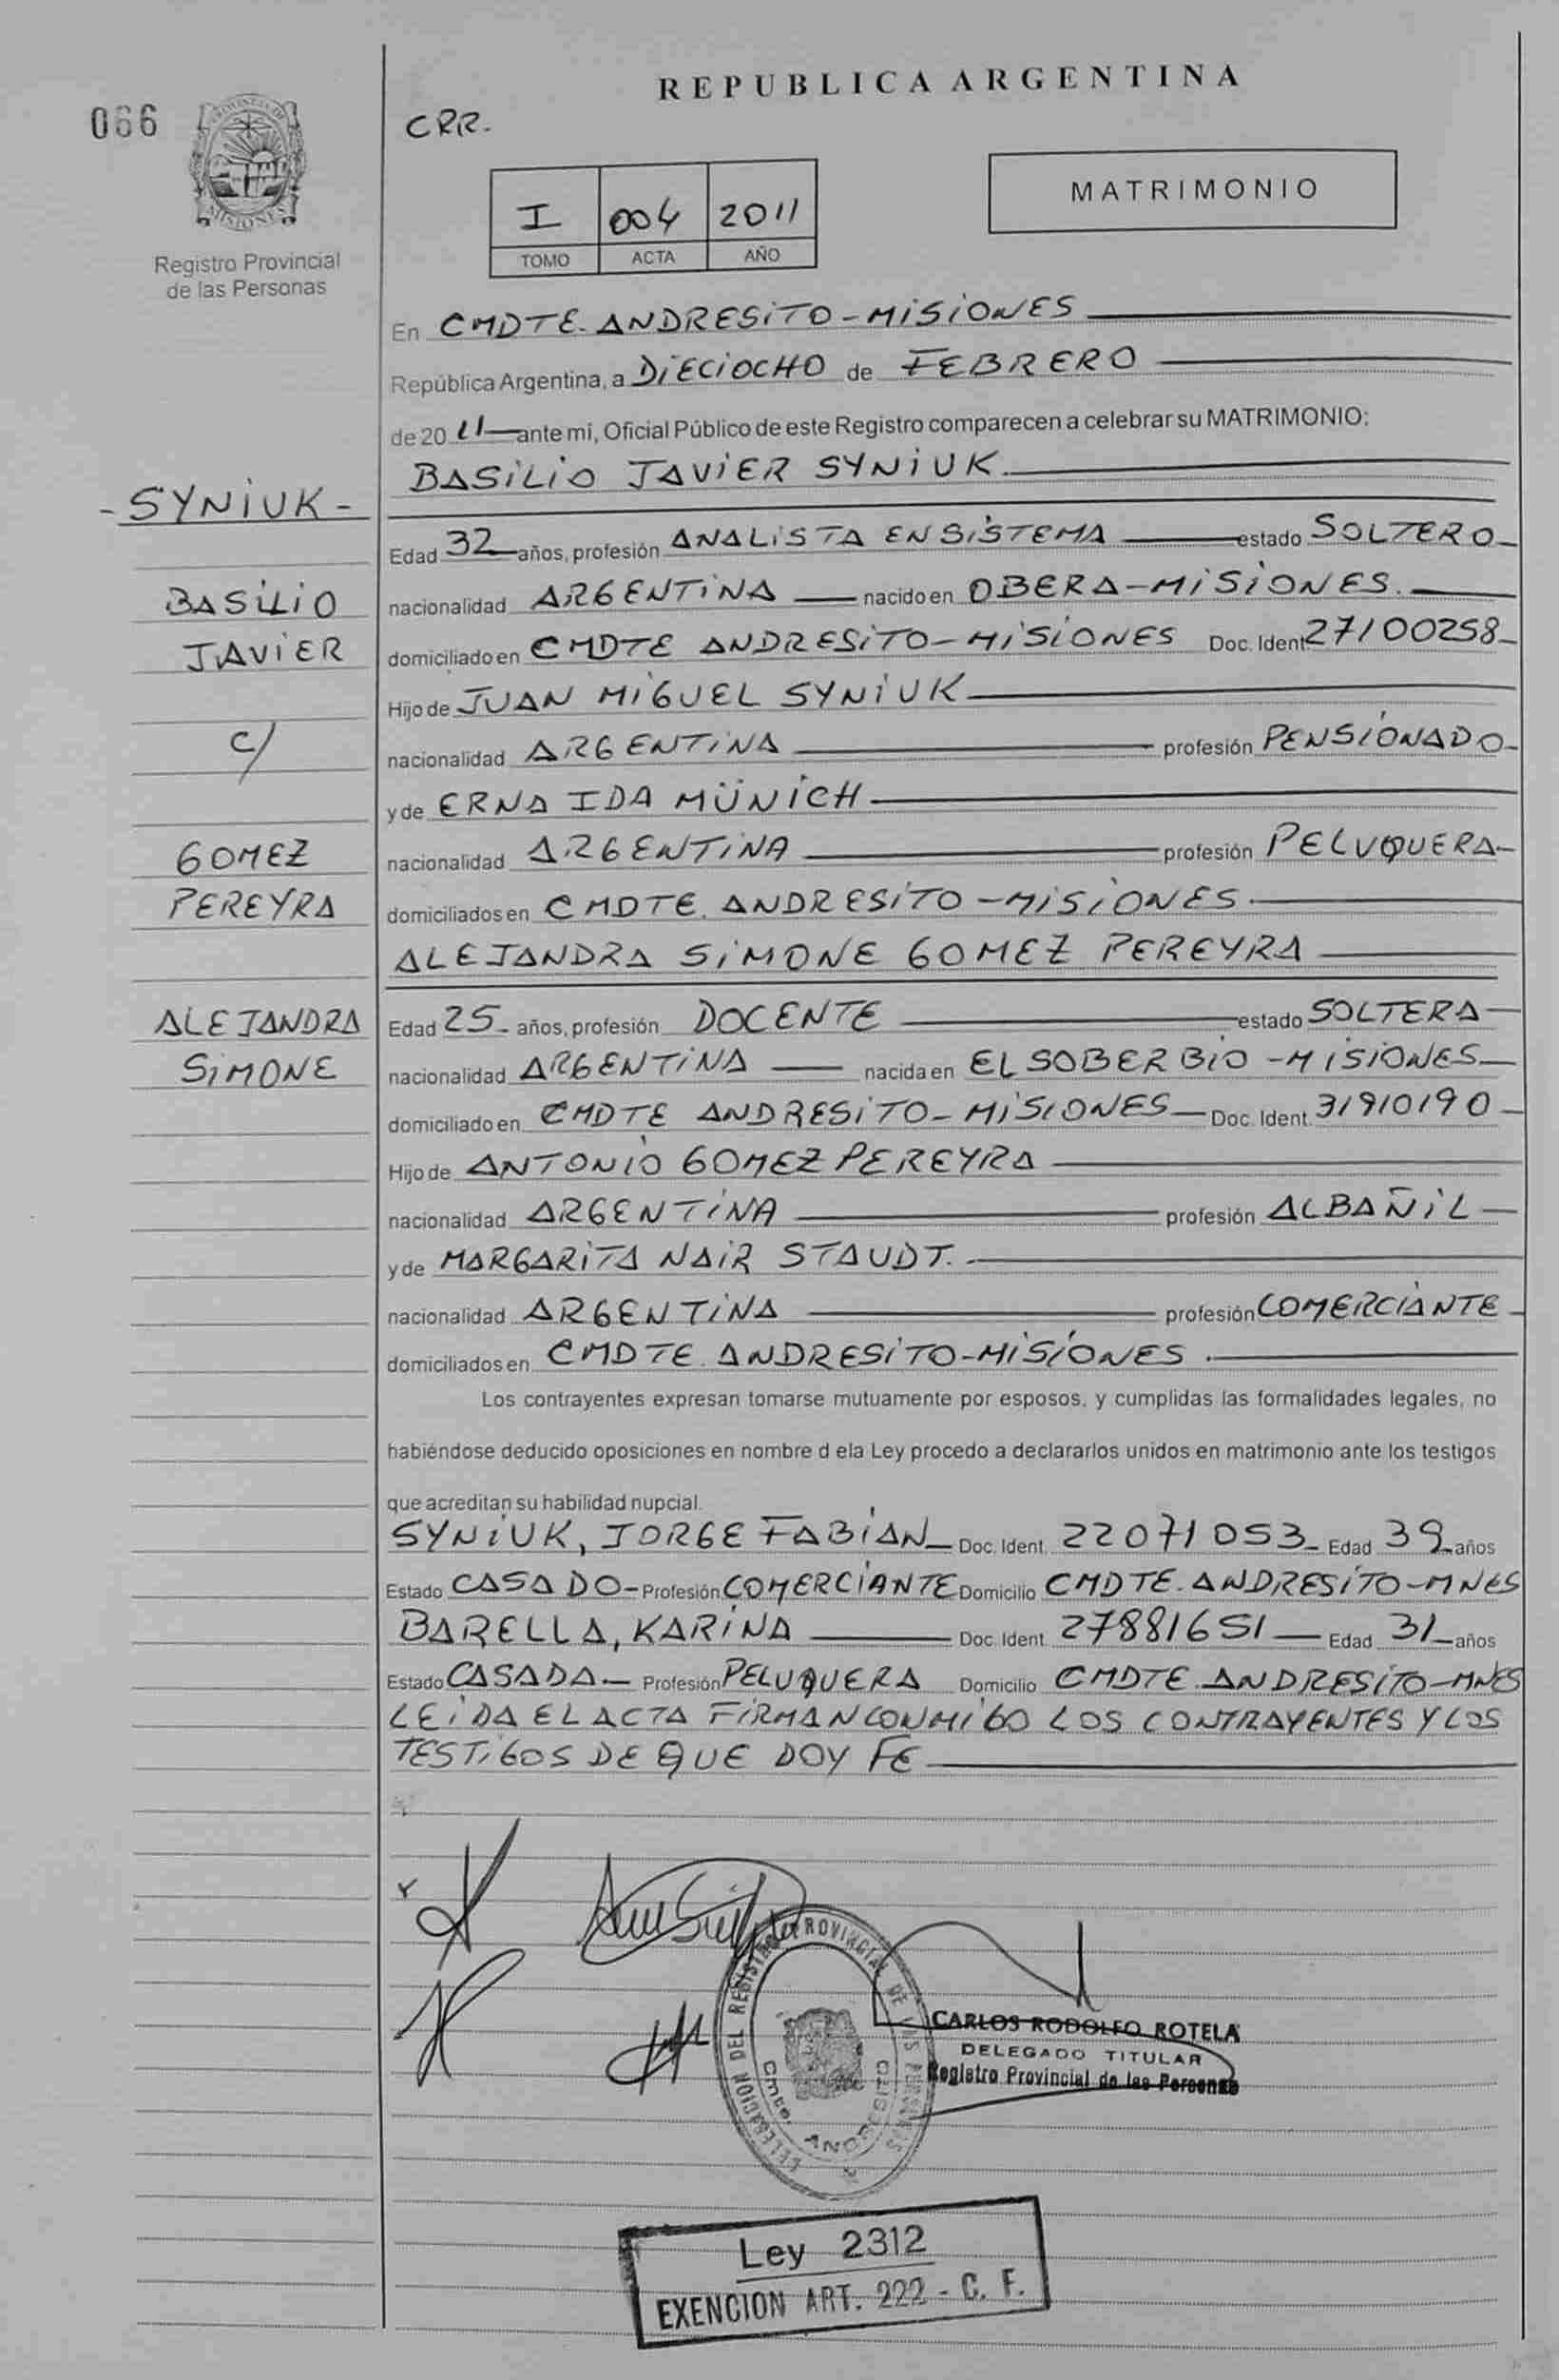 REPUBLICA ARGENTINA
066
CRR.
MISIONES
Registro Provincial
de las Personas
I 004 2011
TOMO ACTA AÑO
MATRIMONIO
En CMDTE. ANDRESITO - MISIONES
República Argentina, a DIECIOCHO de FEBRERO
de 20 11 ante mi, Oficial Público de este Registro comparecen a celebrar su MATRIMONIO:
BASILIO JAVIER SYNIUK
- SYNIUK -
Edad 32 años, profesión ANALISTA EN SISTEMA estado SOLTERO
BASILIO
nacionalidad ARGENTINA nacido en OBERA-MISIONES.
JAVIER
domiciliado en CMDTE ANDRESITO-MISIONES Doc. Ident 27100258
Hijo de JUAN MIGUEL SYNIUK
C/
nacionalidad ARGENTINA profesión PENSIONADO
y de ERNA IDA MÜNICH
GOMEZ
nacionalidad ARGENTINA profesión PELUQUERA
PEREYRA
domiciliados en CMDTE. ANDRESITO - MISIONES
ALEJANDRA SIMONE GOMEZ PEREYRA
ALEJANDRA
Edad 25 años, profesión DOCENTE estado SOLTERA
SIMONE
nacionalidad ARGENTINA nacida en EL SOBERBIO - MISIONES
domiciliado en CMDTE ANDRESITO - MISIONES Doc. Ident. 31910190
Hijo de ANTONIO GOMEZ PEREYRA
nacionalidad ARGENTINA profesión ALBAÑIL
y de MARGARITA NAIR STAUDT.
nacionalidad ARGENTINA profesión COMERCIANTE
domiciliados en CMDTE. ANDRESITO-MISIONES.
Los contrayentes expresan tomarse mutuamente por esposos, y cumplidas las formalidades legales, no
habiéndose deducido oposiciones en nombre d ela Ley procedo a declararlos unidos en matrimonio ante los testigos
que acreditan su habilidad nupcial.
SYNIUK, JORGE FABIAN Doc. Ident. 22071053 Edad 39 años
Estado CASADO - Profesión COMERCIANTE Domicilio CMDTE. ANDRESITO-MNES
BARELLA, KARINA Doc. Ident 27881651 Edad 31 años
Estado CASADA - Profesión PELUQUERA Domicilio CMDTE. ANDRESITO-MNES
LEIDA EL ACTA FIRMAN CONMIGO LOS CONTRAYENTES Y LOS
TESTIGOS DE QUE DOY FE
DELEGACION DEL REGISTRO PROVINCIAL DE LAS PERSONAS
Cmte. ANDRESITO
CARLOS RODOLFO ROTELA
DELEGADO TITULAR
Registro Provincial de las Personas
Ley 2312
EXENCION ART. 222 - C. F.